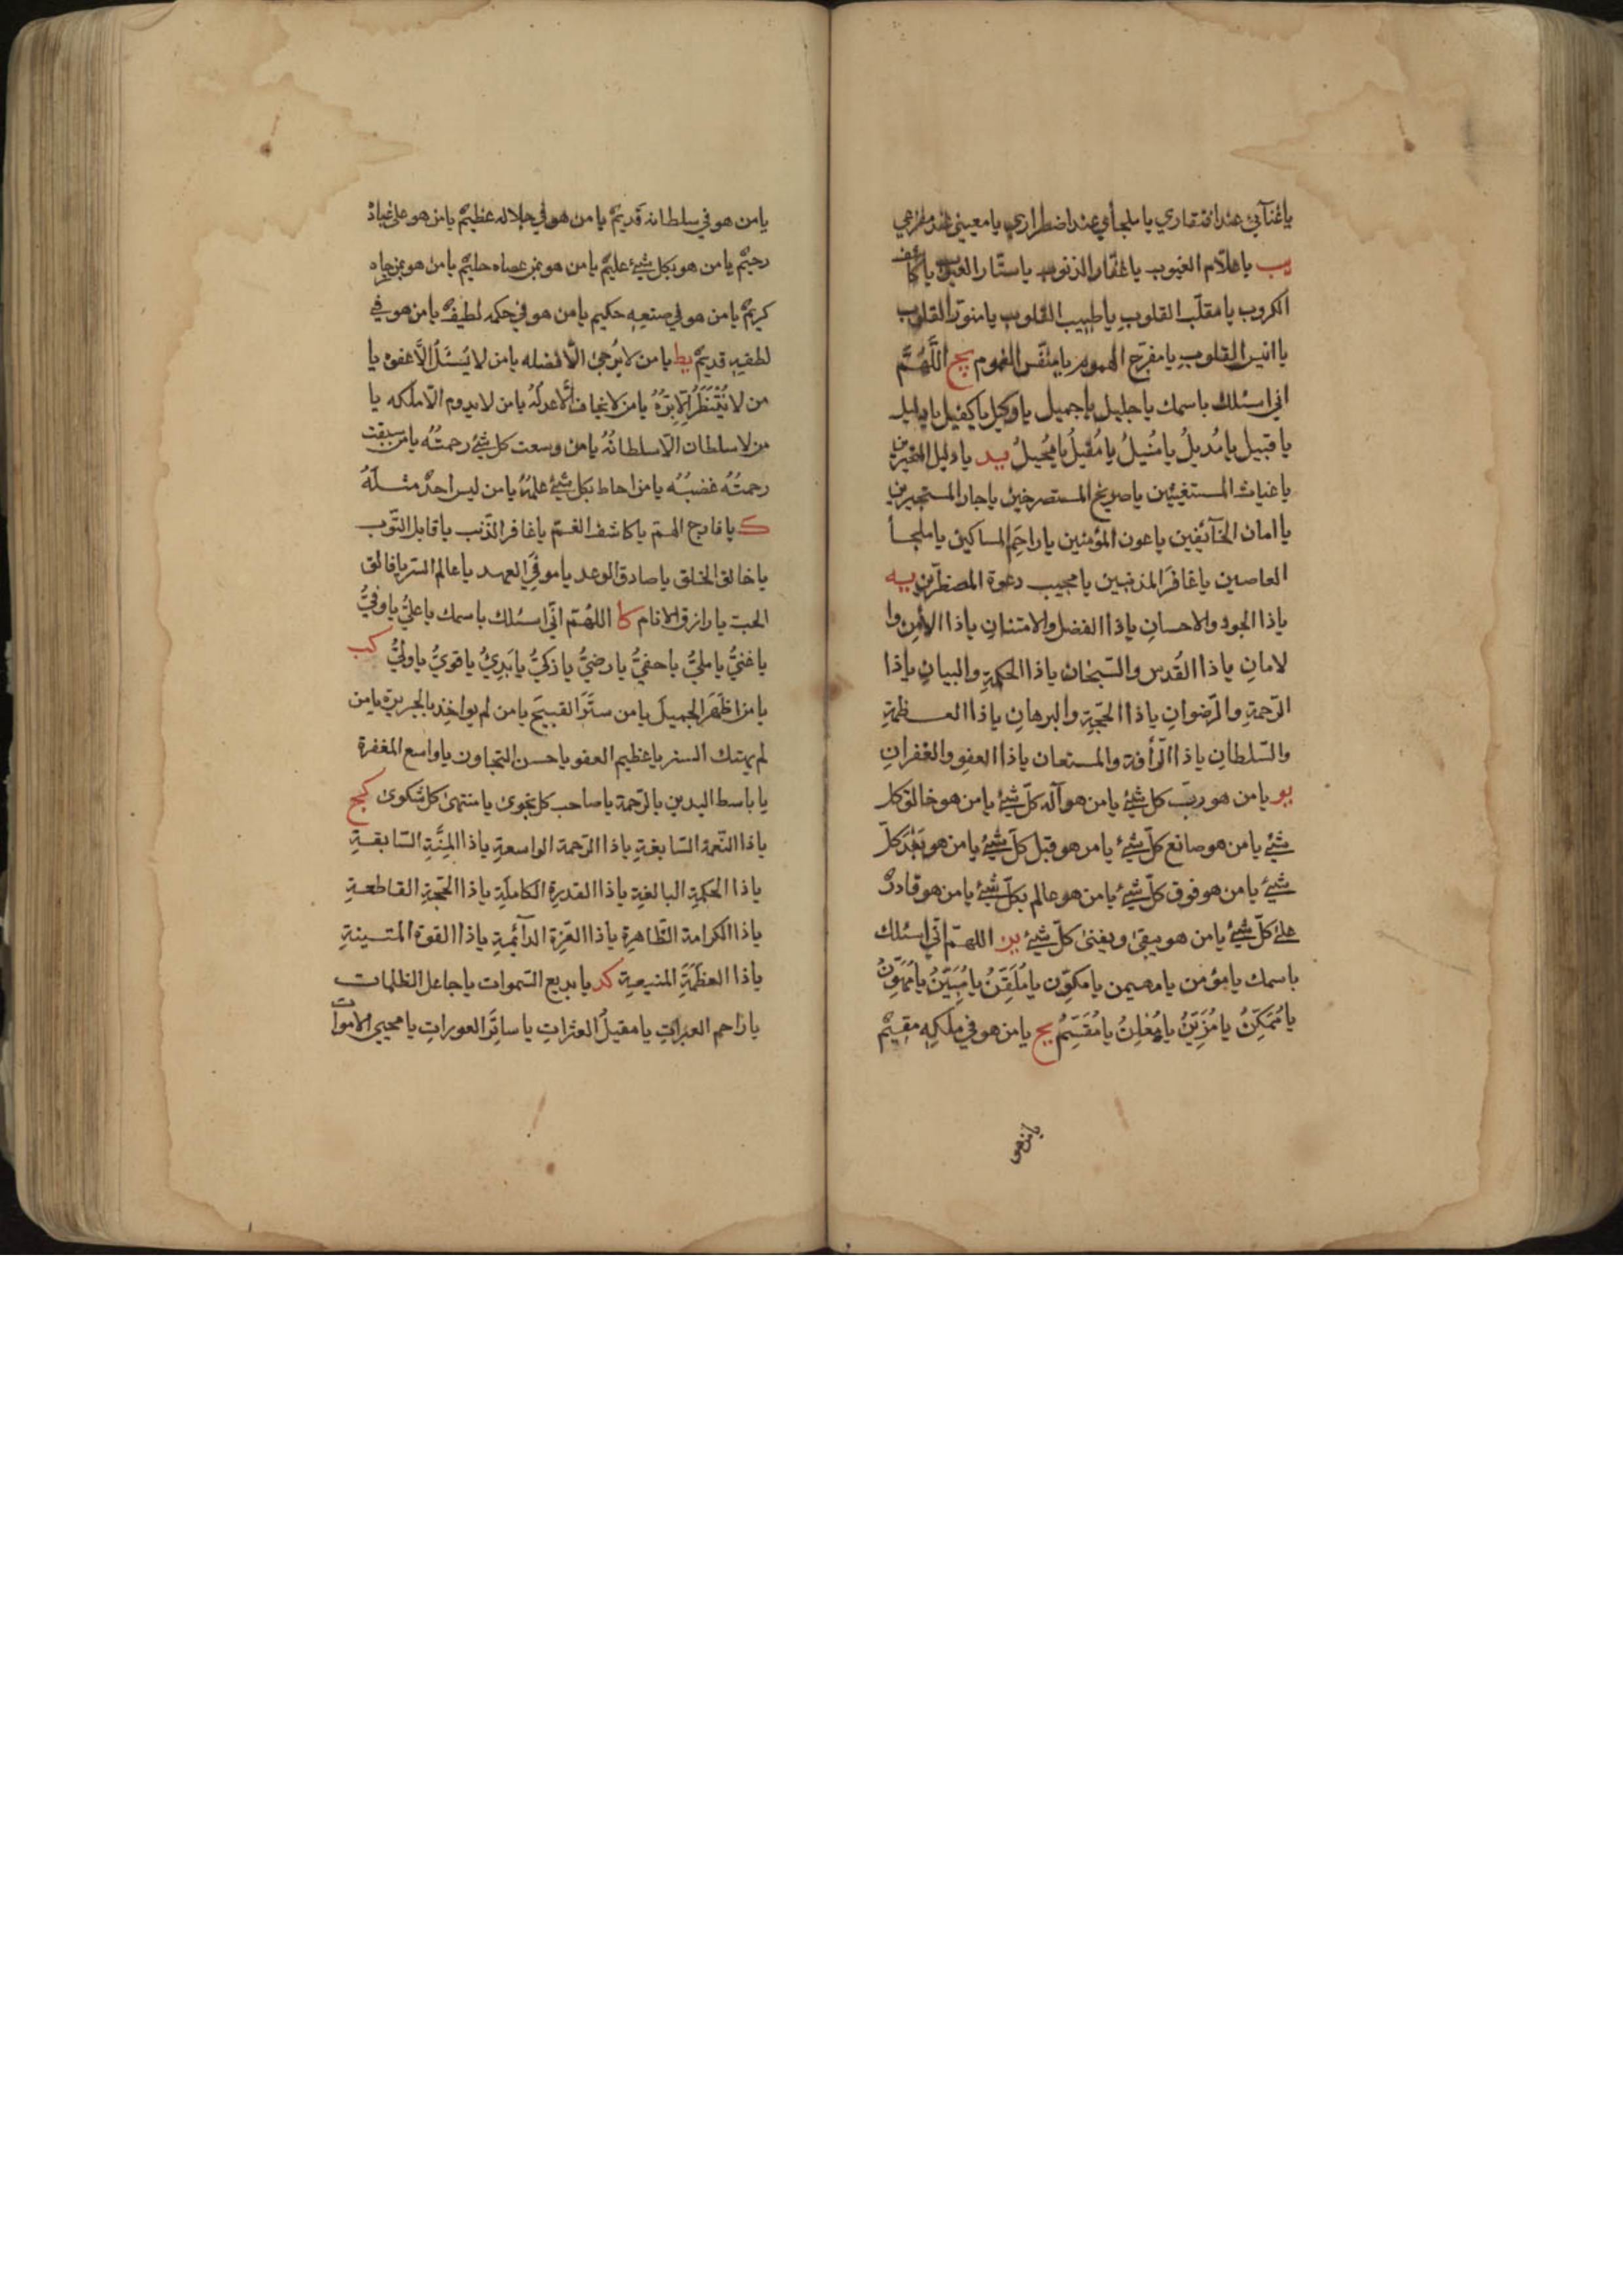 يا غنآئي عند افتقاري يا ملجأي عند اضطراري يا معيني عند مفزعي
يب يا علّام الغيوب يا غفّار الذنوب يا ستّار العيوب يا كاشف
الكروب يا مقلّب القلوبِ يا طبيب القلوب يا منوّر القلوب
يا انيس القلوبِ يا مفرّج الهموم يا منفّس الغموم يج اللَّهُمَّ
اني اسئلك باسمك يا جليل يا جميل يا وكيل يا كفيل يا دليل
يا قبيل يا مُديلُ يا مُنيلُ يا مُقيلُ يا مُحيلُ يد يا دليل المتحيّرين
يا غياث المستغيثين يا صريخ المستصرخين يا جار المستجيرين
يا امان الخآئفين يا عون المؤمنين يا راحِمَ المساكين يا ملجأ
العاصين يا غافرَ المذنبين يا مجيب دعوة المضطرّين يه
يا ذا الجود والاحسانِ يا ذا الفضل والامتنانِ يا ذا الأمنِ وا
لامانِ يا ذا القُدس والسّبحان يا ذا الحكمةِ والبيانِ يا ذا
الرّحمةِ والرّضوانِ يا ذا الحجّةِ والبرهانِ يا ذا العظمةِ
والسّلطانِ يا ذا الرّأفة والمستعان يا ذا العفوِ والغفرانِ
يو يا من هو ربّ كل شئ يا من هو آله كلّ شئ يا من هو خالق كل
شئ يا من هو صانع كلّ شئ يا من هو قبل كلّ شئ يا من هو بَعْدَ كلّ
شئ يا من هو فوق كلّ شئ يا من هو عالم بكلّ شئ يا من هو قادرٌ
على كلّ شئ يا من هو يبقى ويفنى كلّ شئ يز اللهمّ انّي اسئلك
باسمك يا مؤمن يا مهيمن يا مكوّن يا مُلَقِّنُ يا مُبَيِّنُ يا مُهَوِّنُ
يا مُمَكِّنُ يا مُزَيِّنُ يا مُعْلِنُ يا مُقَسِّمُ يح يا من هو في ملكهِ مقيمٌ
يا من هو
يا من هو في سلطانه قديمٌ يا من هو في جلاله عظيمٌ يا من هو على عباده
رحيمٌ يا من هو بكل شئ عليمٌ يا من هو بمن عصاه حليمٌ يا من هو بمن رجاه
كريمٌ يا من هو في صنعهِ حكيم يا من هو في حكمه لطيفٌ يا من هو في
لطفهِ قديمٌ يط يا من لا يُرجىٰ الّا فضله يا من لا يُسْئَلُ الّا عفوه يا
من لا يُنْتَظَرُ الّا بِرّهُ يا من لا يخاف الّا عدلَهُ يا من لا يدوم الّا ملكه يا
من لا سلطان الّا سلطانُهُ يا من وسعت كل شئ رحمتُهُ يا من سبقت
رحمتُهُ غضبُهُ يا من احاط بكل شئ علمُهُ يا من ليس احدٌ مثلَهُ
ك يا فارج الهمّ يا كاشف الغمّ يا غافر الذّنب يا قابل التّوب
يا خالق الخلق يا صادق الوعد يا موفي العهد يا عالم السّر يا فالق
الحبّ يا رازق الانام كا اللهُمّ انّي اسئلك باسمك يا عليُّ يا وفيُّ
يا غنيُّ يا مليُّ يا حفيُّ يا رضيُّ يا زكيُّ يا بَدِئُ يا قويُّ يا وليُّ كب
يا من اظهَرَ الجميلَ يا من ستَرَ القبيحَ يا من لم يواخِذ بالجريرة يا من
لم يهتك الستر يا عظيم العفو يا حسن التجاوز يا واسع المغفرة
يا باسط اليدين بالرّحمة يا صاحب كل نجوى يا منتهى كل شكوى كج
يا ذا النّعمة السّابغةِ يا ذا الرّحمة الواسعةِ يا ذا المِنَّةِ السّابقةِ
يا ذا الحكمةِ البالغةِ يا ذا القدرةِ الكاملَةِ يا ذا الحجّةِ القاطعةِ
يا ذا الكرامة الظّاهرةِ يا ذا العِزّةِ الدآئمةِ يا ذا القوة المتينةِ
يا ذا العظَمَةِ المنيعةِ كد يا بديع السّموات يا جاعل الظلمات
يا راحم العبراتِ يا مقيلَ العثراتِ يا ساتِرَ العوراتِ يا محيي الاموات